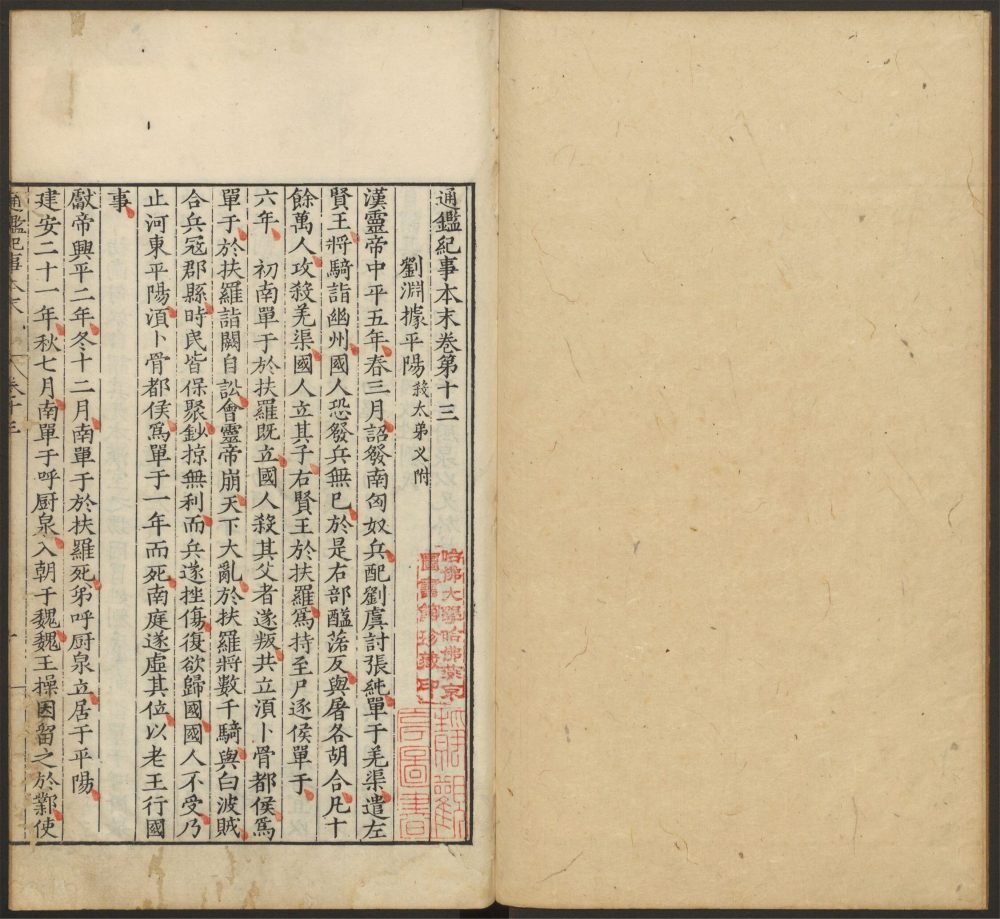 通鑑紀事本末卷第十三
劉淵據平陽 殺太弟乂附
漢靈帝中平五年春三月詔發南匈奴兵配劉虞討張純單于羌渠遣左
賢王將騎詣幽州國人恐發兵無已於是右部䤈落反與屠各胡合凡十
餘萬人攻殺羌渠國人立其子右賢王於扶羅爲持至尸逐侯單于
六年 初南單于於扶羅既立國人殺其父者遂叛共立湏卜骨都侯爲
單于於扶羅詣闕自訟會靈帝崩天下大亂於扶羅將數千騎與白波賊
合兵冦郡縣時民皆保聚鈔掠無利而兵遂挫傷復欲歸國國人不受乃
止河東平陽湏卜骨都侯爲單于一年而死南庭遂虛其位以老王行國
事
獻帝興平二年冬十二月南單于於扶羅死弟呼厨泉立居于平陽
建安二十一年秋七月南單于呼厨泉入朝于魏魏王操因留之於鄴使
通鑑紀事本末 卷十三
哈佛大學哈佛燕京
圖書館珍藏印